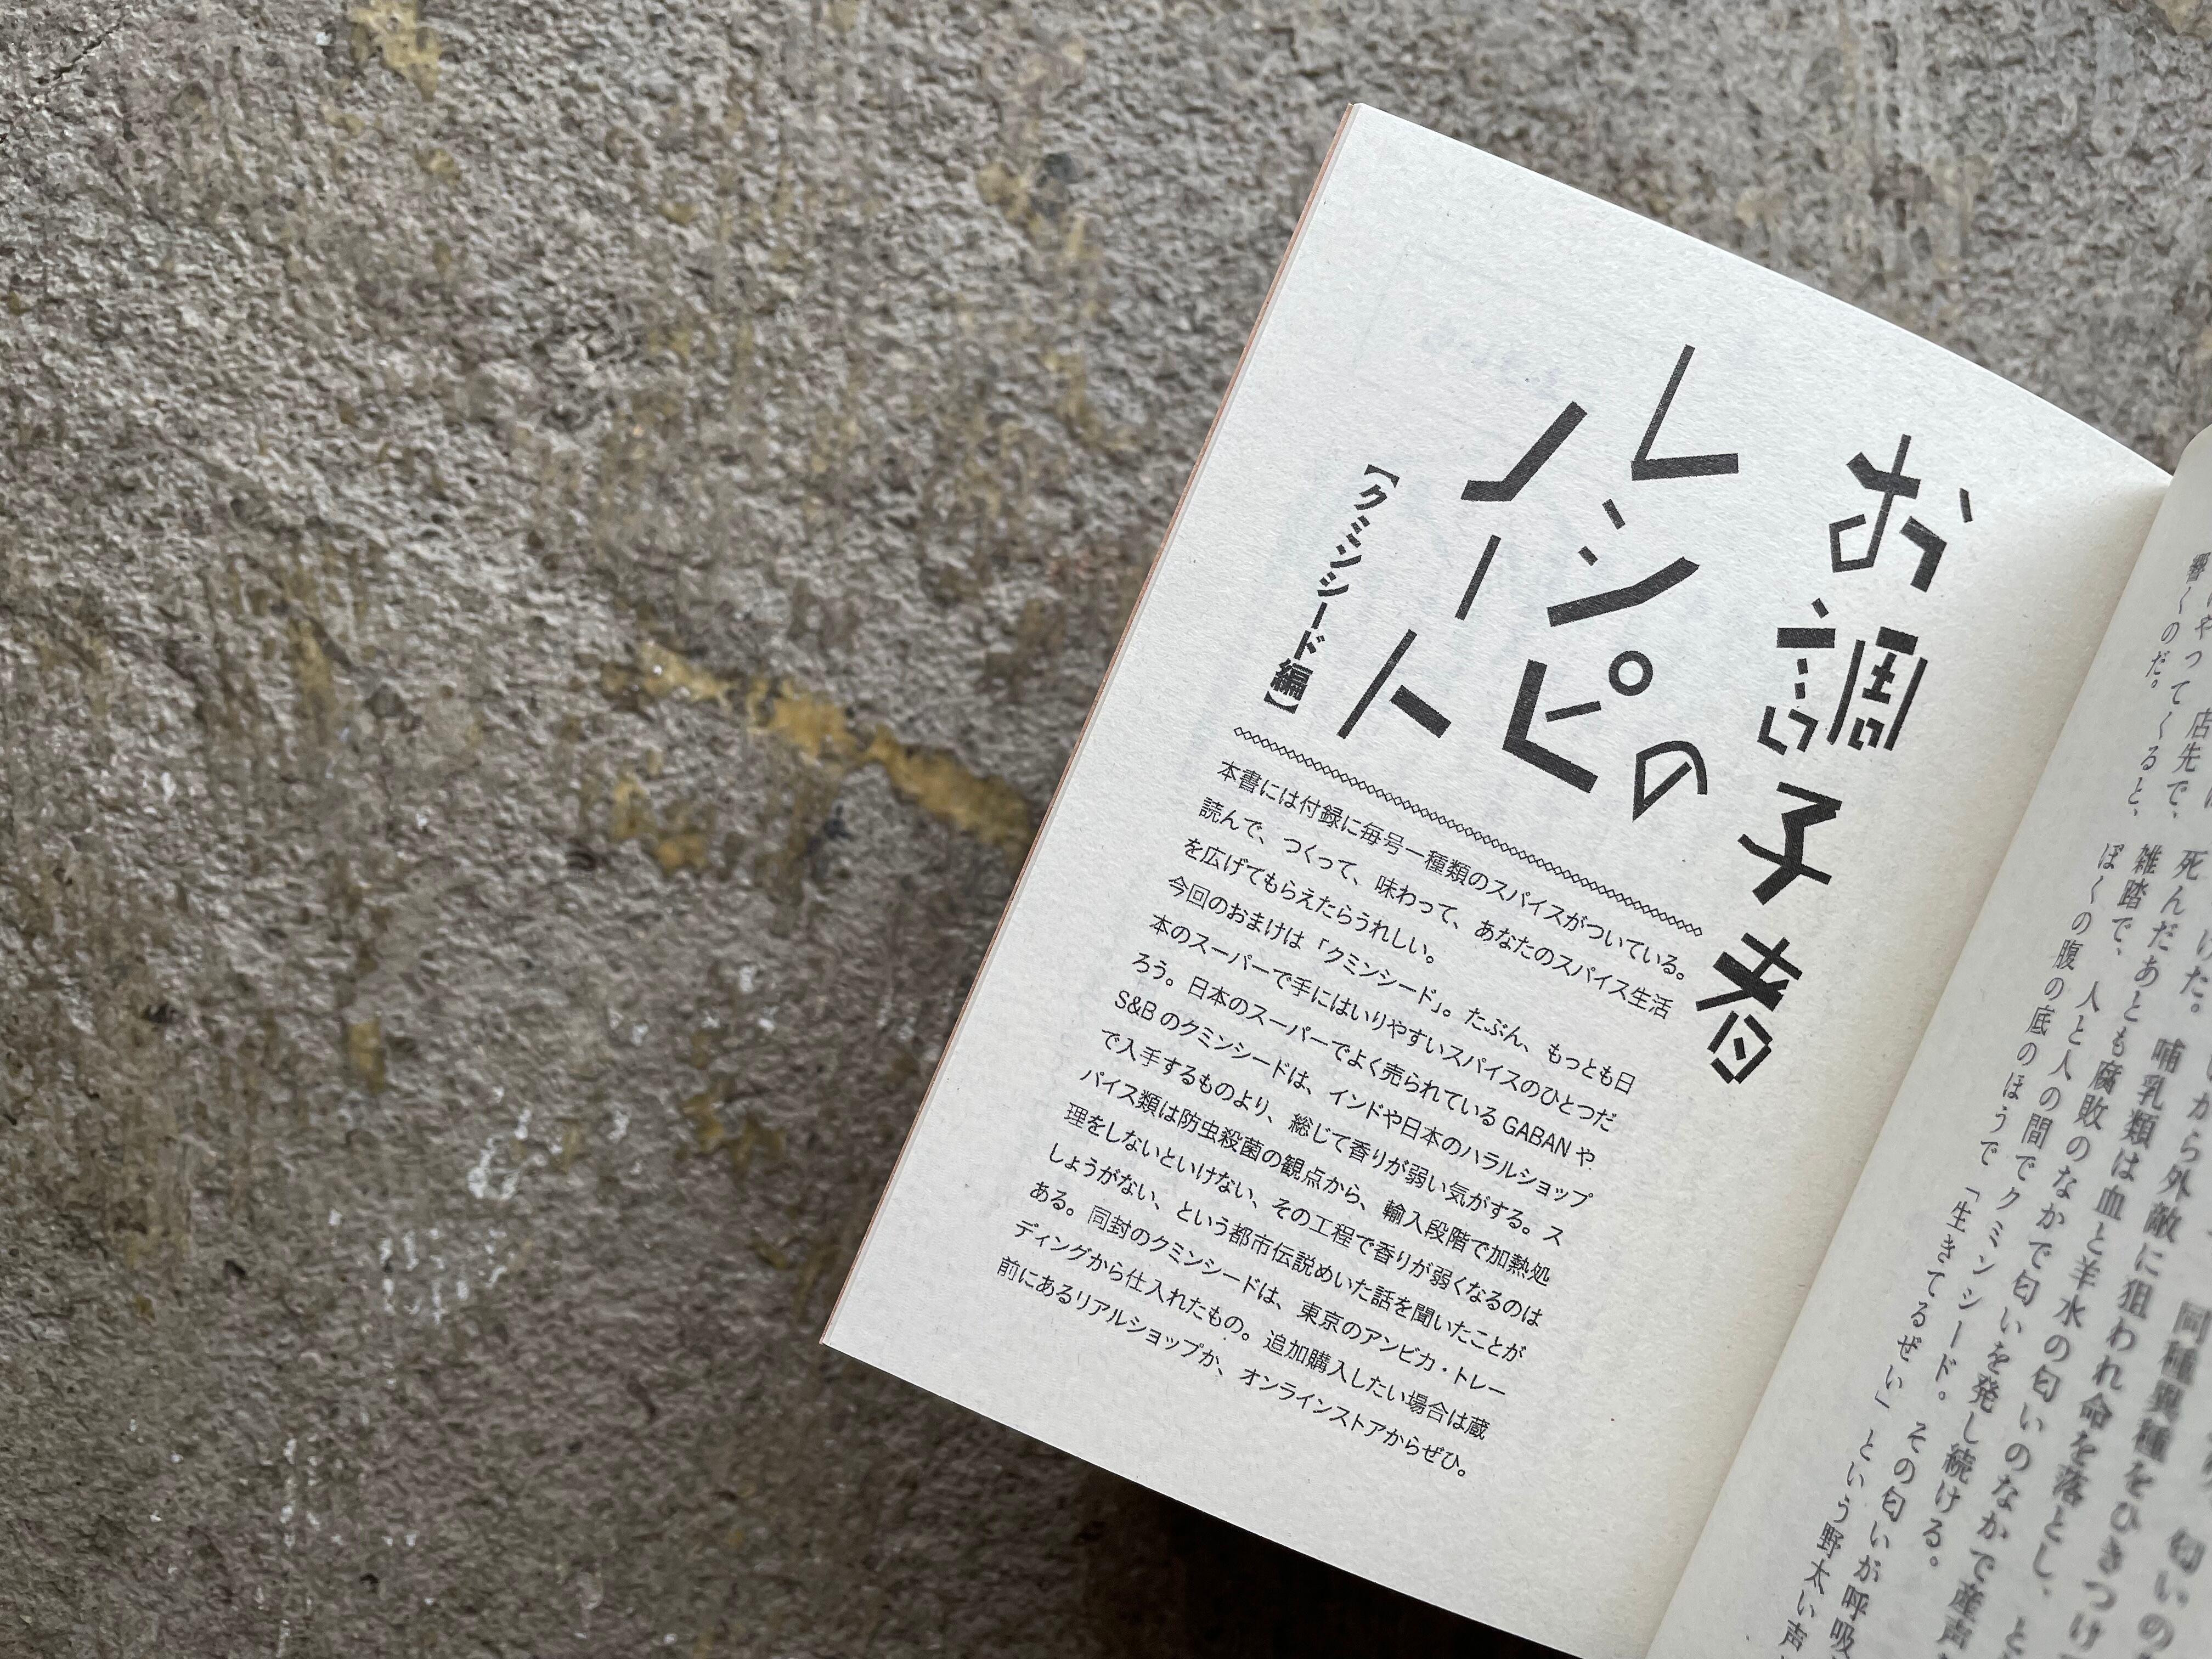 同種異種をひきつけ
外敵に狙われ命を落とし、と
哺乳類は血と羊水の匂いのなかで産声
死んだあとも腐敗のなかで匂いを発し続ける。
店先で、
雑踏で、人と人の間でクミンシード。その匂いが呼吸
やってくると、
ぼくの腹の底のほうで「生きてるぜい」という野太い声
響くのだ。
お調子者の
レシピ
ノート
【クミンシード編】
本書には付録に毎号一種類のスパイスがついている。
読んで、つくって、味わって、あなたのスパイス生活
を広げてもらえたらうれしい。
今回のおまけは「クミンシード」。たぶん、もっとも日
本のスーパーで手にはいりやすいスパイスのひとつだ
ろう。日本のスーパーでよく売られている GABAN や
S&B のクミンシードは、インドや日本のハラルショップ
で入手するものより、総じて香りが弱い気がする。ス
パイス類は防虫殺菌の観点から、輸入段階で加熱処
理をしないといけない、その工程で香りが弱くなるのは
しょうがない、という都市伝説めいた話を聞いたことが
ある。同封のクミンシードは、東京のアンビカ・トレー
ディングから仕入れたもの。追加購入したい場合は蔵
前にあるリアルショップか、オンラインストアからぜひ。